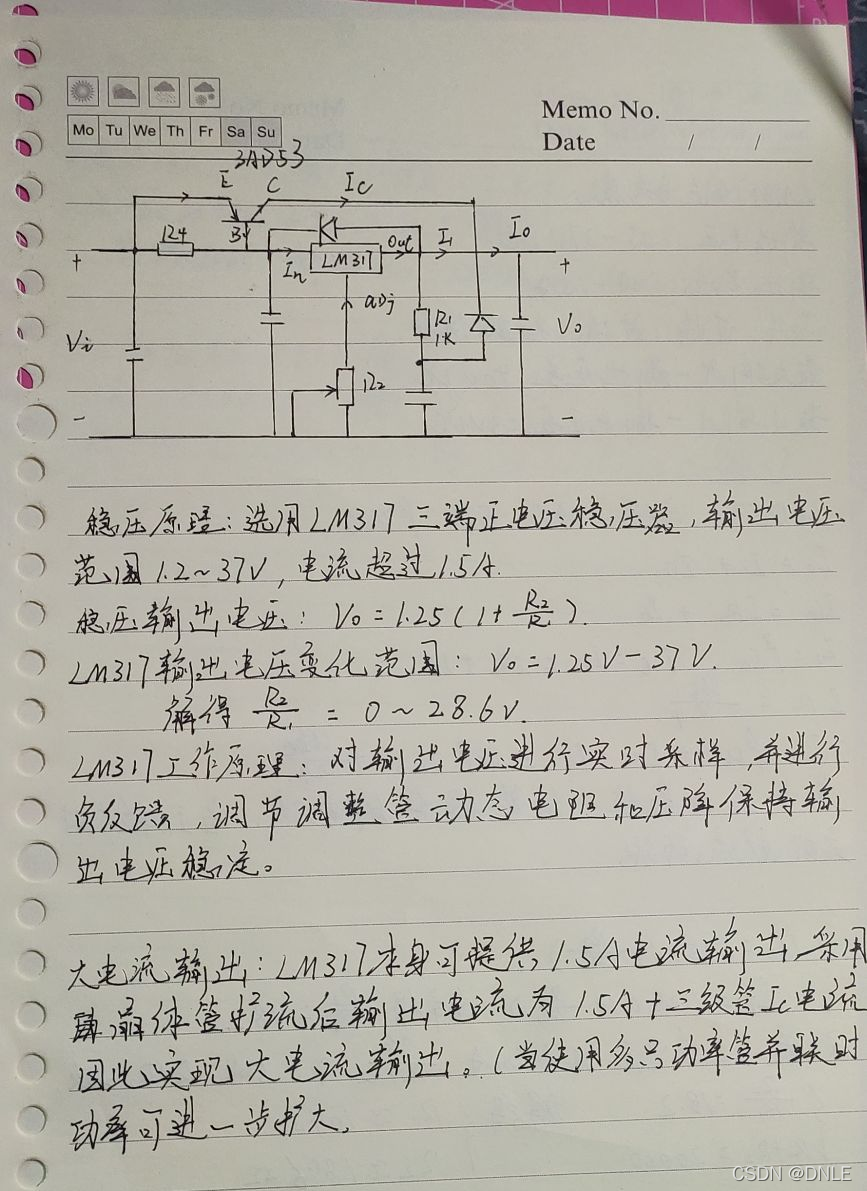 Memo No.
Mo Tu We Th Fr Sa Su
Date / /
3AD53
E C Ic
R4 B Out I1 Io
+ In LM317 +
adj
R1
1K
Vi Vo
R2
- -
稳压原理：选用LM317三端正电压稳压器，输出电压
范围1.2~37V，电流超过1.5A.
稳压输出电压：Vo=1.25(1+R2/R1).
LM317输出电压变化范围：Vo=1.25V-37V.
解得 R2/R1 = 0~28.6V.
LM317工作原理：对输出电压进行实时采样，并进行
负反馈，调节调整管动态电阻和压降保持输
出电压稳定。
大电流输出：LM317本身可提供1.5A电流输出，采用
晶体管扩流后输出电流为1.5A+三级管Ic电流
因此实现大电流输出。(当使用多只功率管并联时
功率可进一步扩大.
CSDN @DNLE